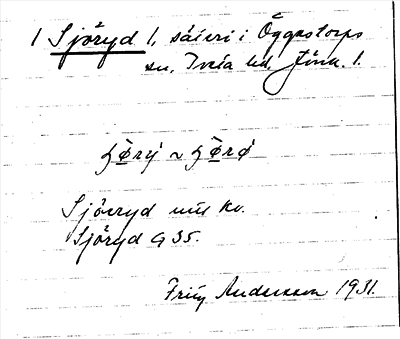 1 Sjöryd 1, säteri i Öggestorps
sn, Tveta hd. Jönk. l.
Sjöeryd
Sjöryd G 35.
Fritz Andersson 1931.